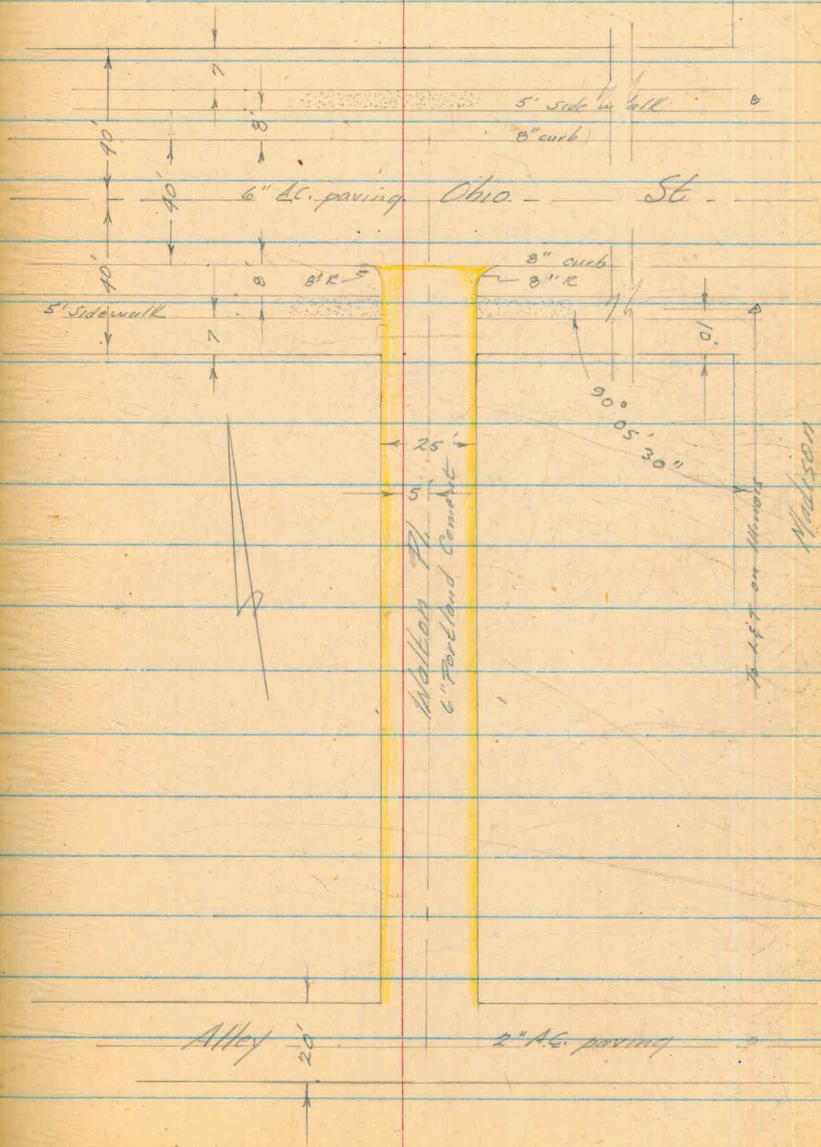 7
5' side walk
8'
8" curb
40'
40'
6" A.C. paving Ohio St
8" curb
40'
8'
8' R
8" R
5' Sidewalk
7
10'
90° 05' 30"
25'
5'
Walton Pl.
6" Portland Cement
To L&T on Illinois
Madison
Alley
20'
2" A.C. paving